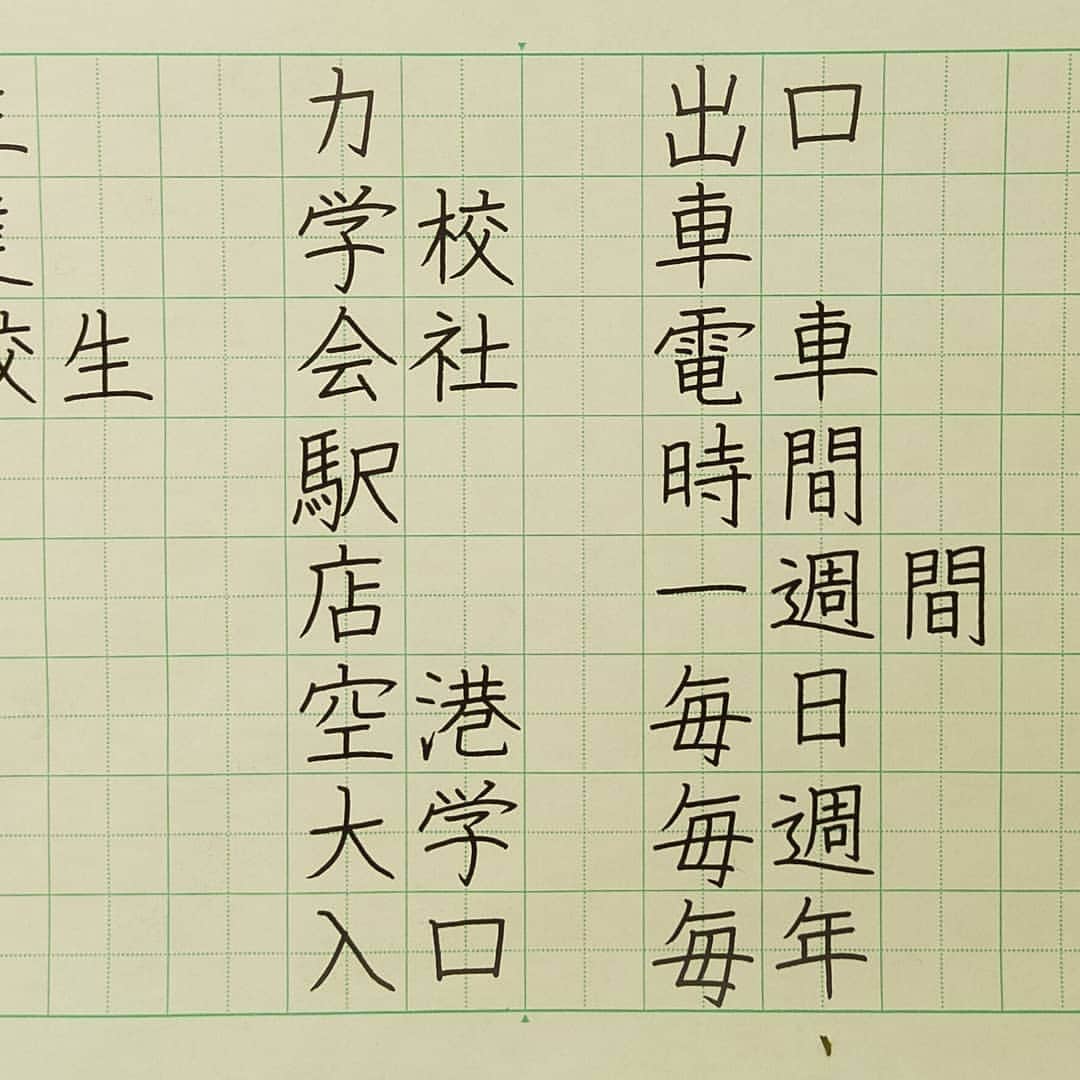 校生
力
学校
会社
駅
店
空港
大学
入口
出口
車
電車
時間
一週間
毎日
毎週
毎年